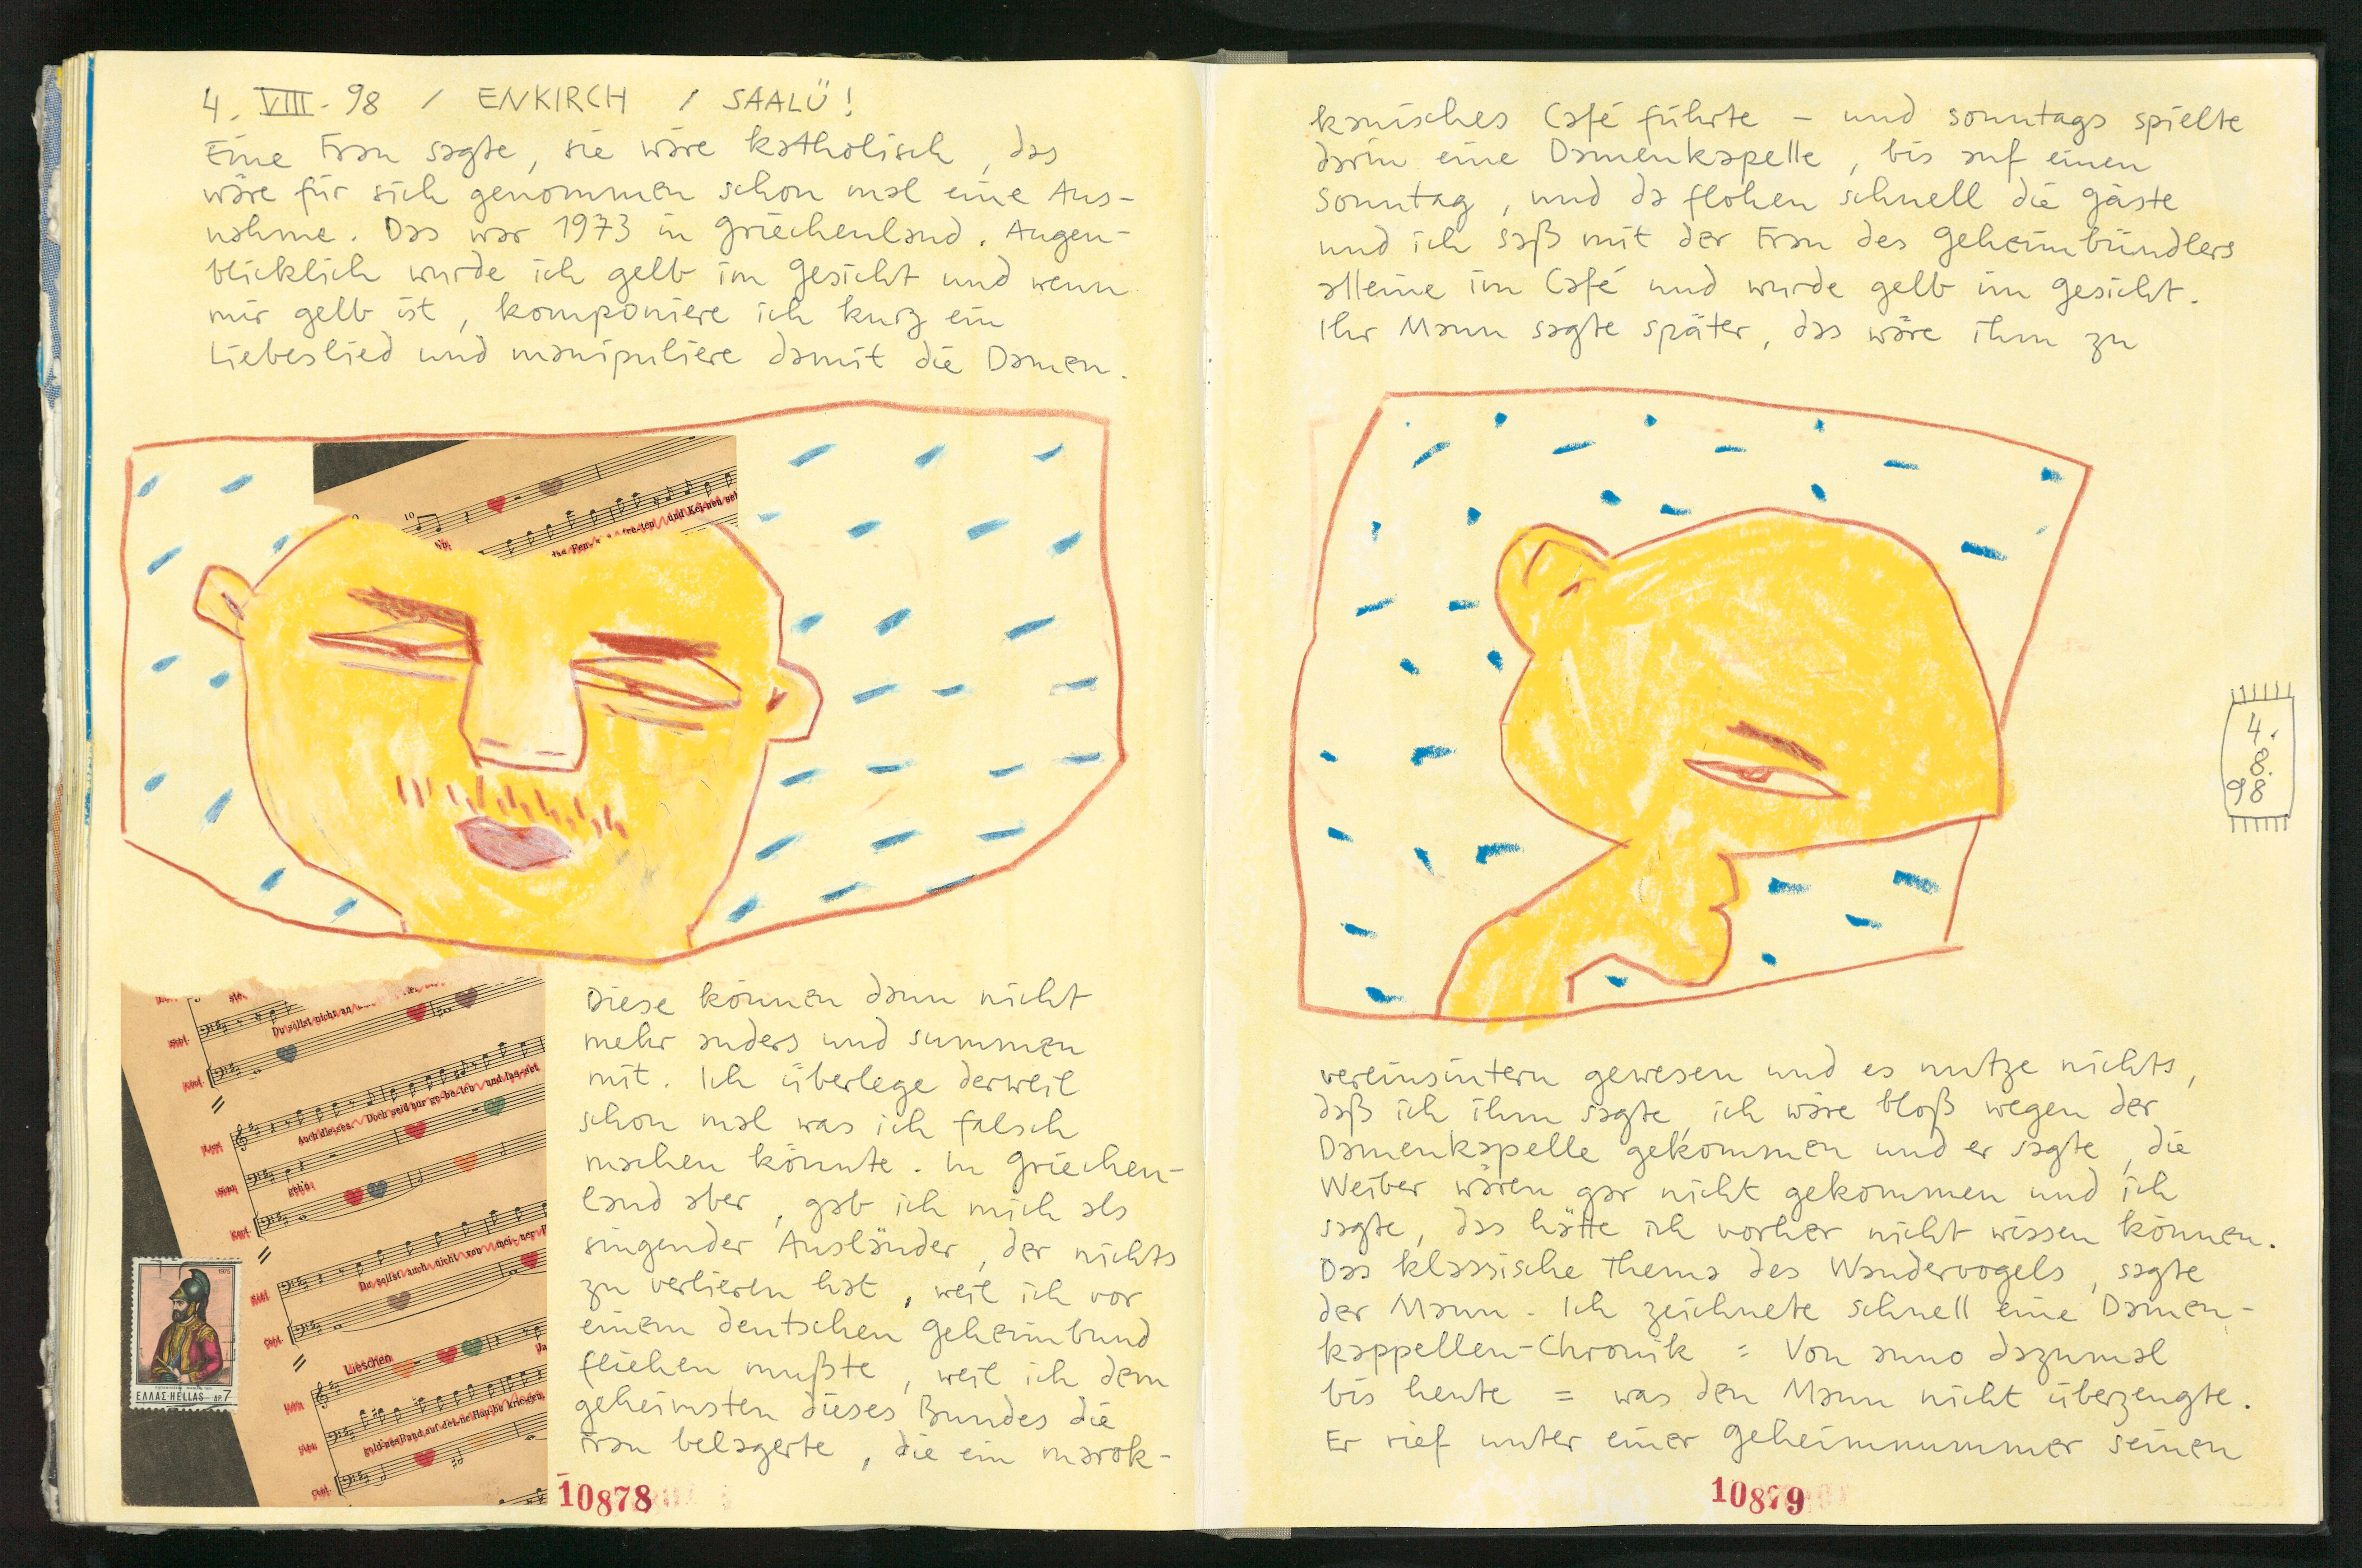 4. VIII. 98 / ENKIRCH / SAALÜ!
Eine Frau sagte, sie wäre katholisch, das
wäre für sich genommen schon mal eine Aus-
nahme. Das war 1973 in Griechenland. Augen-
blicklich wurde ich gelb im Gesicht und wenn
mir gelb ist, komponiere ich kurz ein
Liebeslied und manipuliere damit die Damen.
10
und Kei-nen
Diese können dann nicht
mehr anders und summen
mit. Ich überlege derweil
schon mal was ich falsch
machen könnte. In Griechen-
land aber, gab ich mich als
singender Ausländer, der nichts
zu verlieren hat, weil ich vor
einem deutschen Geheimbund
fliehen mußte, weil ich dem
geheimsten dieses Bundes die
Frau belagerte, die ein marok-
Du sollst nicht an
Auch die-ses. Doch seid nur ge-be-ten und las-set
gehn
Du sollst auch nicht von mei-ner
Lieschen
gold-nes Band auf dei-ne Hau-be krie-gen
1975
ΕΛΛΑΣ-HELLAS ΔΡ.7
10878
kanisches Café führte – und sonntags spielte
darin eine Damenkapelle, bis auf einen
Sonntag, und da flohen schnell die Gäste
und ich saß mit der Frau des Geheimbündlers
alleine im Café und wurde gelb im Gesicht.
Ihr Mann sagte später, das wäre ihm zu
4.
8.
98
vereinsintern gewesen und es nutze nichts,
daß ich ihm sagte, ich wäre bloß wegen der
Damenkapelle gekommen und er sagte, die
Weiber wären gar nicht gekommen und ich
sagte, das hätte ich vorher nicht wissen können.
Das klassische Thema des Wandervogels, sagte
der Mann. Ich zeichnete schnell eine Damen-
kappellen-Chronik = Von anno dazumal
bis heute = was den Mann nicht überzeugte.
Er rief unter einer Geheimnummer seinen
10879